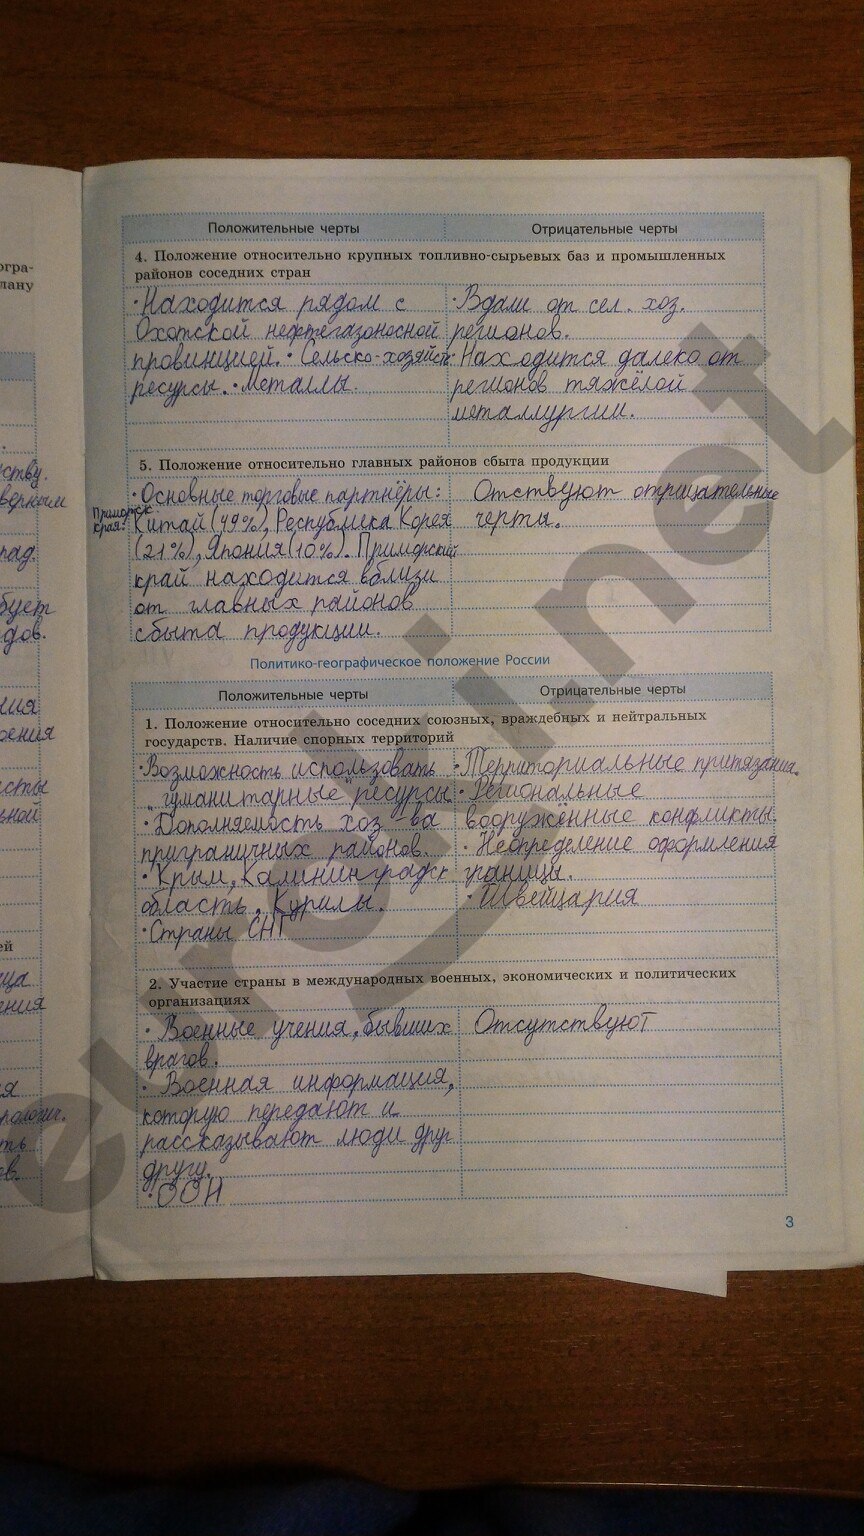 огра-
лану
ству.
пад.
дов.
ния
ьной
ей
ния
ть
Положительные черты Отрицательные черты
4. Положение относительно крупных топливно-сырьевых баз и промышленных
районов соседних стран
·Находится рядом с ·Вдали от сел. хоз.
Охотской нефтегазоносной регионов.
провинцией. ·Сельско-хозяйст ·Находится далеко от
ресурсы. ·Металлы. регионов тяжёлой
металлургии.
5. Положение относительно главных районов сбыта продукции
·Основные торговые партнёры: Отствуют отрицательные
Приморск Китай (49%), Республика Корея черты.
края: (21%), Япония (10%). Приморский
край находится вблизи
от главных районов
сбыта продукции.
Политико-географическое положение России
Положительные черты Отрицательные черты
1. Положение относительно соседних союзных, враждебных и нейтральных
государств. Наличие спорных территорий
·Возможность использовать ·Территориальные притязания.
"гуманитарные" ресурсы ·Региональные
·Дополняемость хоз-ва вооружённые конфликты.
приграничных районов. ·Неопределение оформления
·Крым, Калининградск границы.
область, Курилы. ·Швейцария
·Страны СНГ
2. Участие страны в международных военных, экономических и политических
организациях
·Военные учения, бывших Отсутствуют
врагов.
·Военная информация,
которую передают и
рассказывают люди друг
другу.
·ООН
3
euroki.net